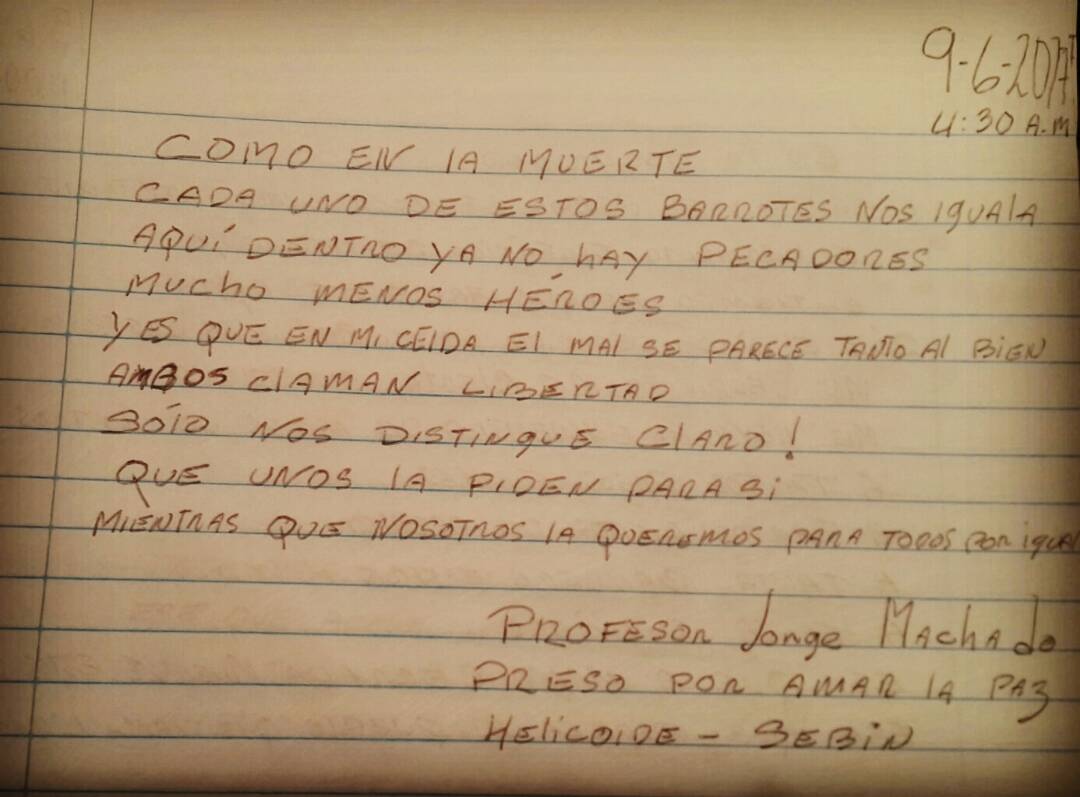 9-6-2017
4:30 A.M
COMO EN LA MUERTE
CADA UNO DE ESTOS BARROTES NOS IGUALA
AQUÍ DENTRO YA NO HAY PECADORES
MUCHO MENOS HÉROES
Y ES QUE EN MI CELDA EL MAL SE PARECE TANTO AL BIEN
AMBOS CLAMAN LIBERTAD
SÓLO NOS DISTINGUE CLARO!
QUE UNOS LA PIDEN PARA SI
MIENTRAS QUE NOSOTROS LA QUEREMOS PARA TODOS POR IGUAL
PROFESOR Jorge Machado
PRESO POR AMAR LA PAZ
HELICOIDE - SEBIN